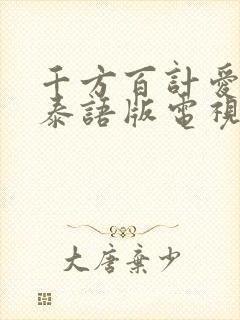 千方百計愛
泰語版電視
大唐棄少